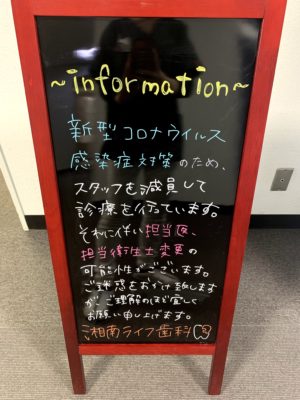 ~information~
新型コロナウイルス
感染症対策のため、
スタッフを減員して
診療を行っています。
それに伴い担当医、
担当衛生士変更の
可能性がございます。
ご迷惑をおかけ致します
が、ご理解のほど宜しく
お願い申し上げます。
湘南ライフ歯科